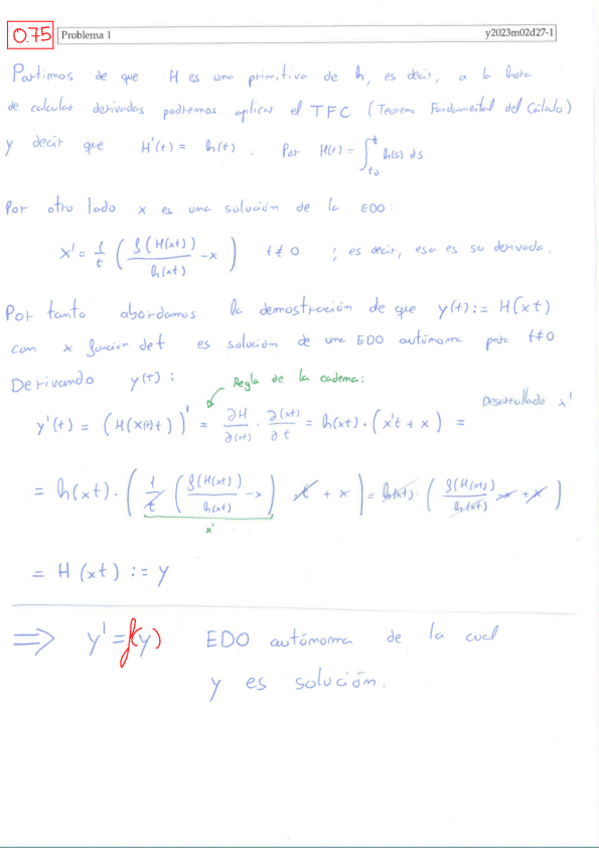 0.75 Problema 1 y2023m02d27-1
Partimos de que H es una primitiva de h, es decir, a la hora
de calcular derivadas podremos aplicar el TFC (Teorema Fundamental del Cálculo)
y decir que H'(t) = h(t). Por H(t) = ∫_{t₀}^{t} h(s) ds
Por otro lado x es una solución de la EDO:
x' = 1/t ( f(H(xt))/h(xt) - x ) t ≠ 0 ; es decir, esa es su derivada.
Por tanto abordamos la demostración de que y(t) := H(xt)
com x función de t es solución de una EDO autónoma para t≠0
Derivando y(t):
Regla de la cadena:
Desarrollado x'
y'(t) = (H(x(t)t))' = ∂H/∂(xt) · ∂(xt)/∂t = h(xt) · (x't + x) =
= h(xt) · ( 1/t ( f(H(xt))/h(xt) - x ) t + x ) = h(xt) · ( f(H(xt))/h(xt) - x + x )
x'
= H(xt) := y
⟹ y' = f(y) EDO autónoma de la cual
y es solución.